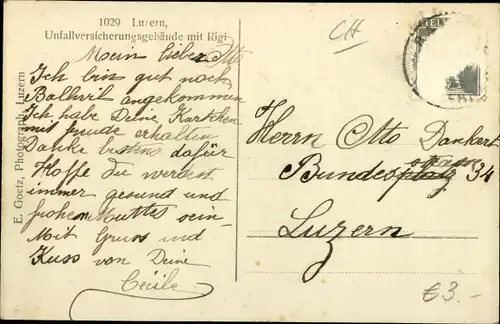 1029 Luzern,
Unfallversicherungsgebäude mit Rigi
E. Goetz, Photograph, Luzern
CH
Mein lieber Otto
Ich bin gut nach
Ballwil angekommen
Ich habe Deine Kärtchen
mit freude erhalten
Danke bestens dafür
Hoffe du werdest
immer gesund und
frohen Muttes sein-
Mit Gruss und
Kuss von Deine
Cecile
Herrn Otto Dankert
Bundesplatz strasse 34
Luzern
€3.-